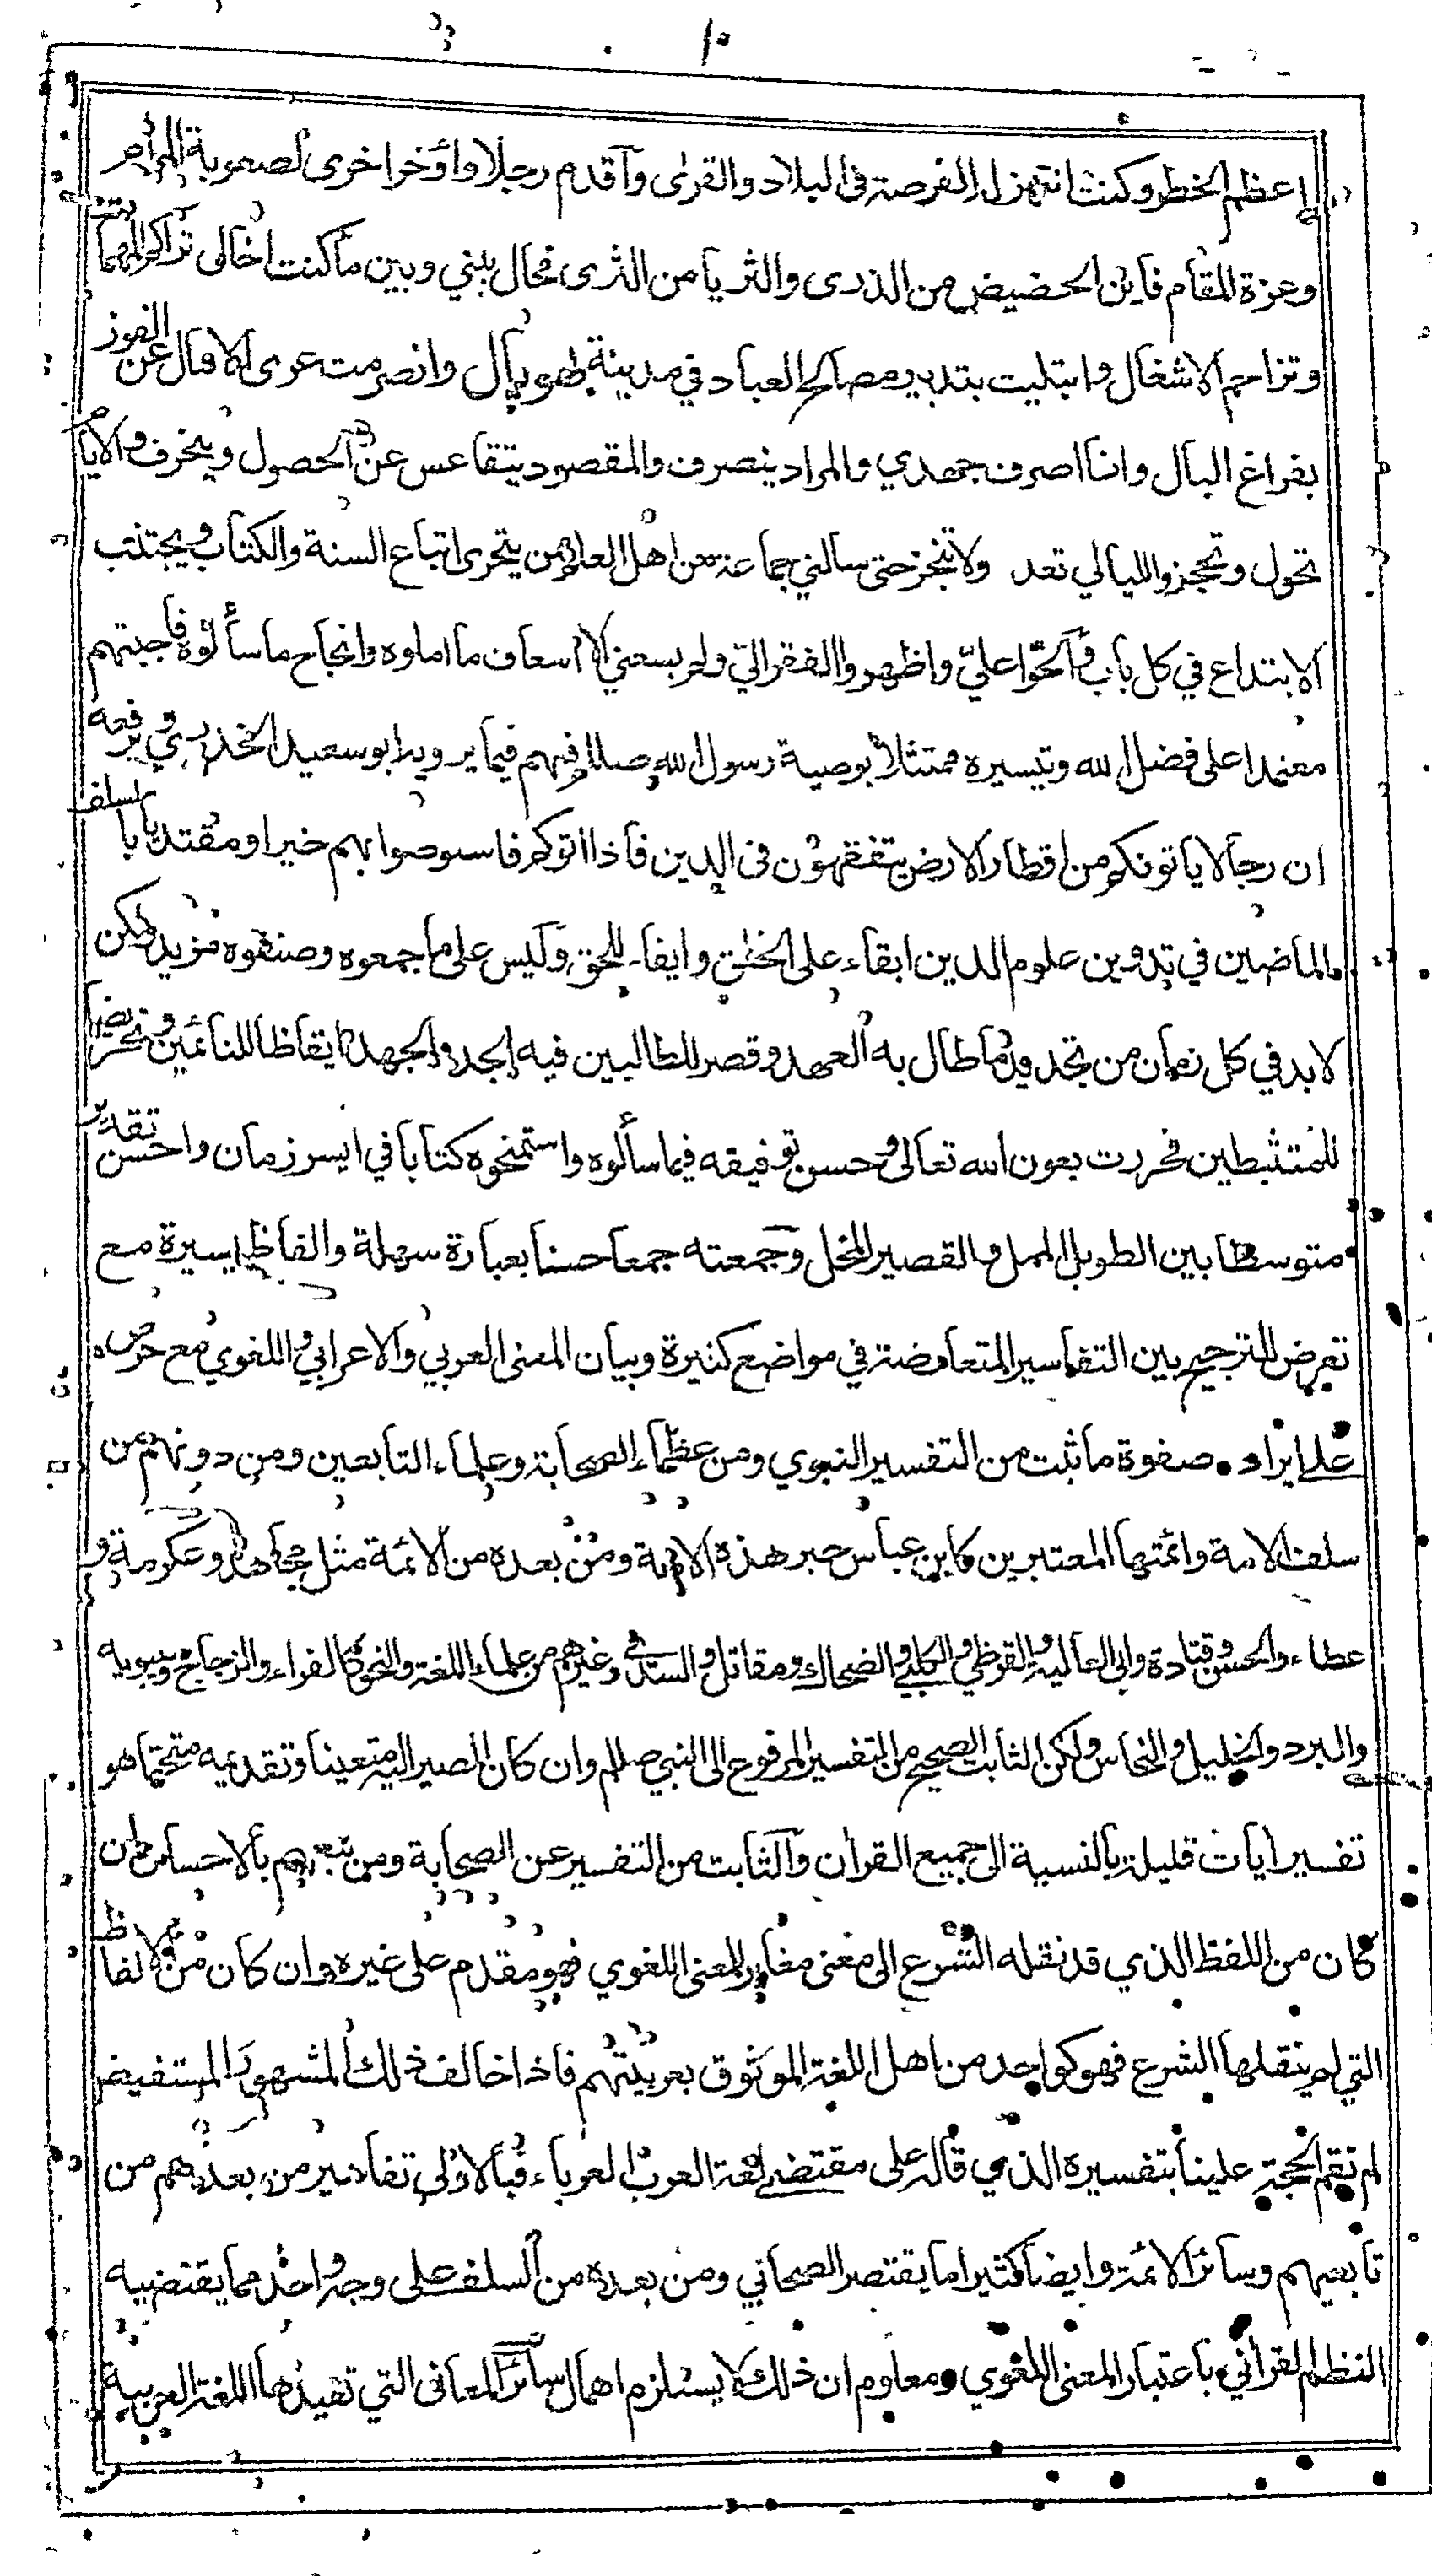 ١٠
اعظم الخطر وكنت انتهزله الفرصة فى البلاد والقرى واقدم رجلا واؤخر اخرى لصعوبة المرام
وعزة المقام فاين الحضيض من الذرى والثريا من الثرى فحال بيني وبين ما كنت اخالى تراكم المهمات
وتزاحم الاشغال وابتليت بتدبير مصالح العباد في مدينة بهوپال وانصرمت عرى الامال عن الفوز
بفراغ البال وانا اصرف جهدي والمراد ينصرف والمقصود يتقاعس عن الحصول وينحرف والايام
تحول وتحجز والليالي تعد ولا تنجز حتى سالني جماعة من اهل العلم ممن يتحرى اتباع السنة والكتاب ويجتنب
الابتداع في كل باب والحّوا عليّ واظهروا الفقر اليّ ولم يسعني الا اسعاف ما املوه وانجاح ما سألوه فاجبتهم
معتمدا على فضل الله وتيسيره ممتثلا بوصية رسول الله صللم فيهم فيما يرويه ابو سعيد الخدري يرفعه
ان رجالا ياتونكم من اقطار الارض يتفقهون فى الدين فاذا اتوكم فاستوصوا بهم خيرا ومقتديا بالسلف
الماضين في تدوين علوم الدين ابقاء على الخلق وايفاء للحق وليس على ما جمعوه وصنفوه مزيد ولكن
لابد في كل زمان من تجديد ما طال به العهد وقصر للطالبين فيه الجد والجهد ايقاظا للنائمين وتحريضا
للمتثبطين فحررت بعون الله تعالى وحسن توفيقه فيما سألوه واستمنحوه كتابا في ايسر زمان واحسن تقدير
متوسطا بين الطويل الممل والقصير المخل وجمعته جمعا حسنا بعبارة سهلة والفاظ يسيرة مع
تعرض للترجيح بين التفاسير المتعارضة في مواضع كثيرة وبيان المعنى العربي والاعرابي واللغوي مع حرص
على ايراد صفوة ما ثبت من التفسير النبوي ومن عظماء الصحابة وعلماء التابعين ومن دونهم من
سلف الامة وائمتها المعتبرين كابن عباس حبر هذه الامة ومن بعده من الائمة مثل مجاهد وعكرمة و
عطاء والحسن وقتادة وابى العالية والقرظي والكلبي والضحاك ومقاتل والسدي وغيرهم من علماء اللغة والنحو كالفراء والزجاج وسيبويه
والمبرد والخليل والنحاس ولكن الثابت الصحيح من التفسير المرفوع الى النبي صللم وان كان المصير اليه متعينا وتقديمه متحتما هو
تفسير ايات قليلة بالنسبة الى جميع القران والثابت من التفسير عن الصحابة ومن تبعهم بالاحسان ان
كان من اللفظ الذي قد نقله الشرع الى معنى مغاير للمعنى اللغوي فهو مقدم على غيره وان كان من الالفاظ
التي لم ينقلها الشرع فهو كواحد من اهل اللغة الموثوق بعربيتهم فاذا خالف ذلك المشهور المستفيض
لم تقم الحجة علينا بتفسيره الذي قاله على مقتضى لغة العرب العرباء فبالاولى تفاسير من بعدهم من
تابعيهم وسائر الائمة وايضا كثيرا ما يقتصر الصحابي ومن بعده من السلف على وجه واحد مما يقتضيه
النظم القراني باعتبار المعنى اللغوي ومعلوم ان ذلك لا يستلزم اهمال سائر المعانى التي تفيدها اللغة العربية